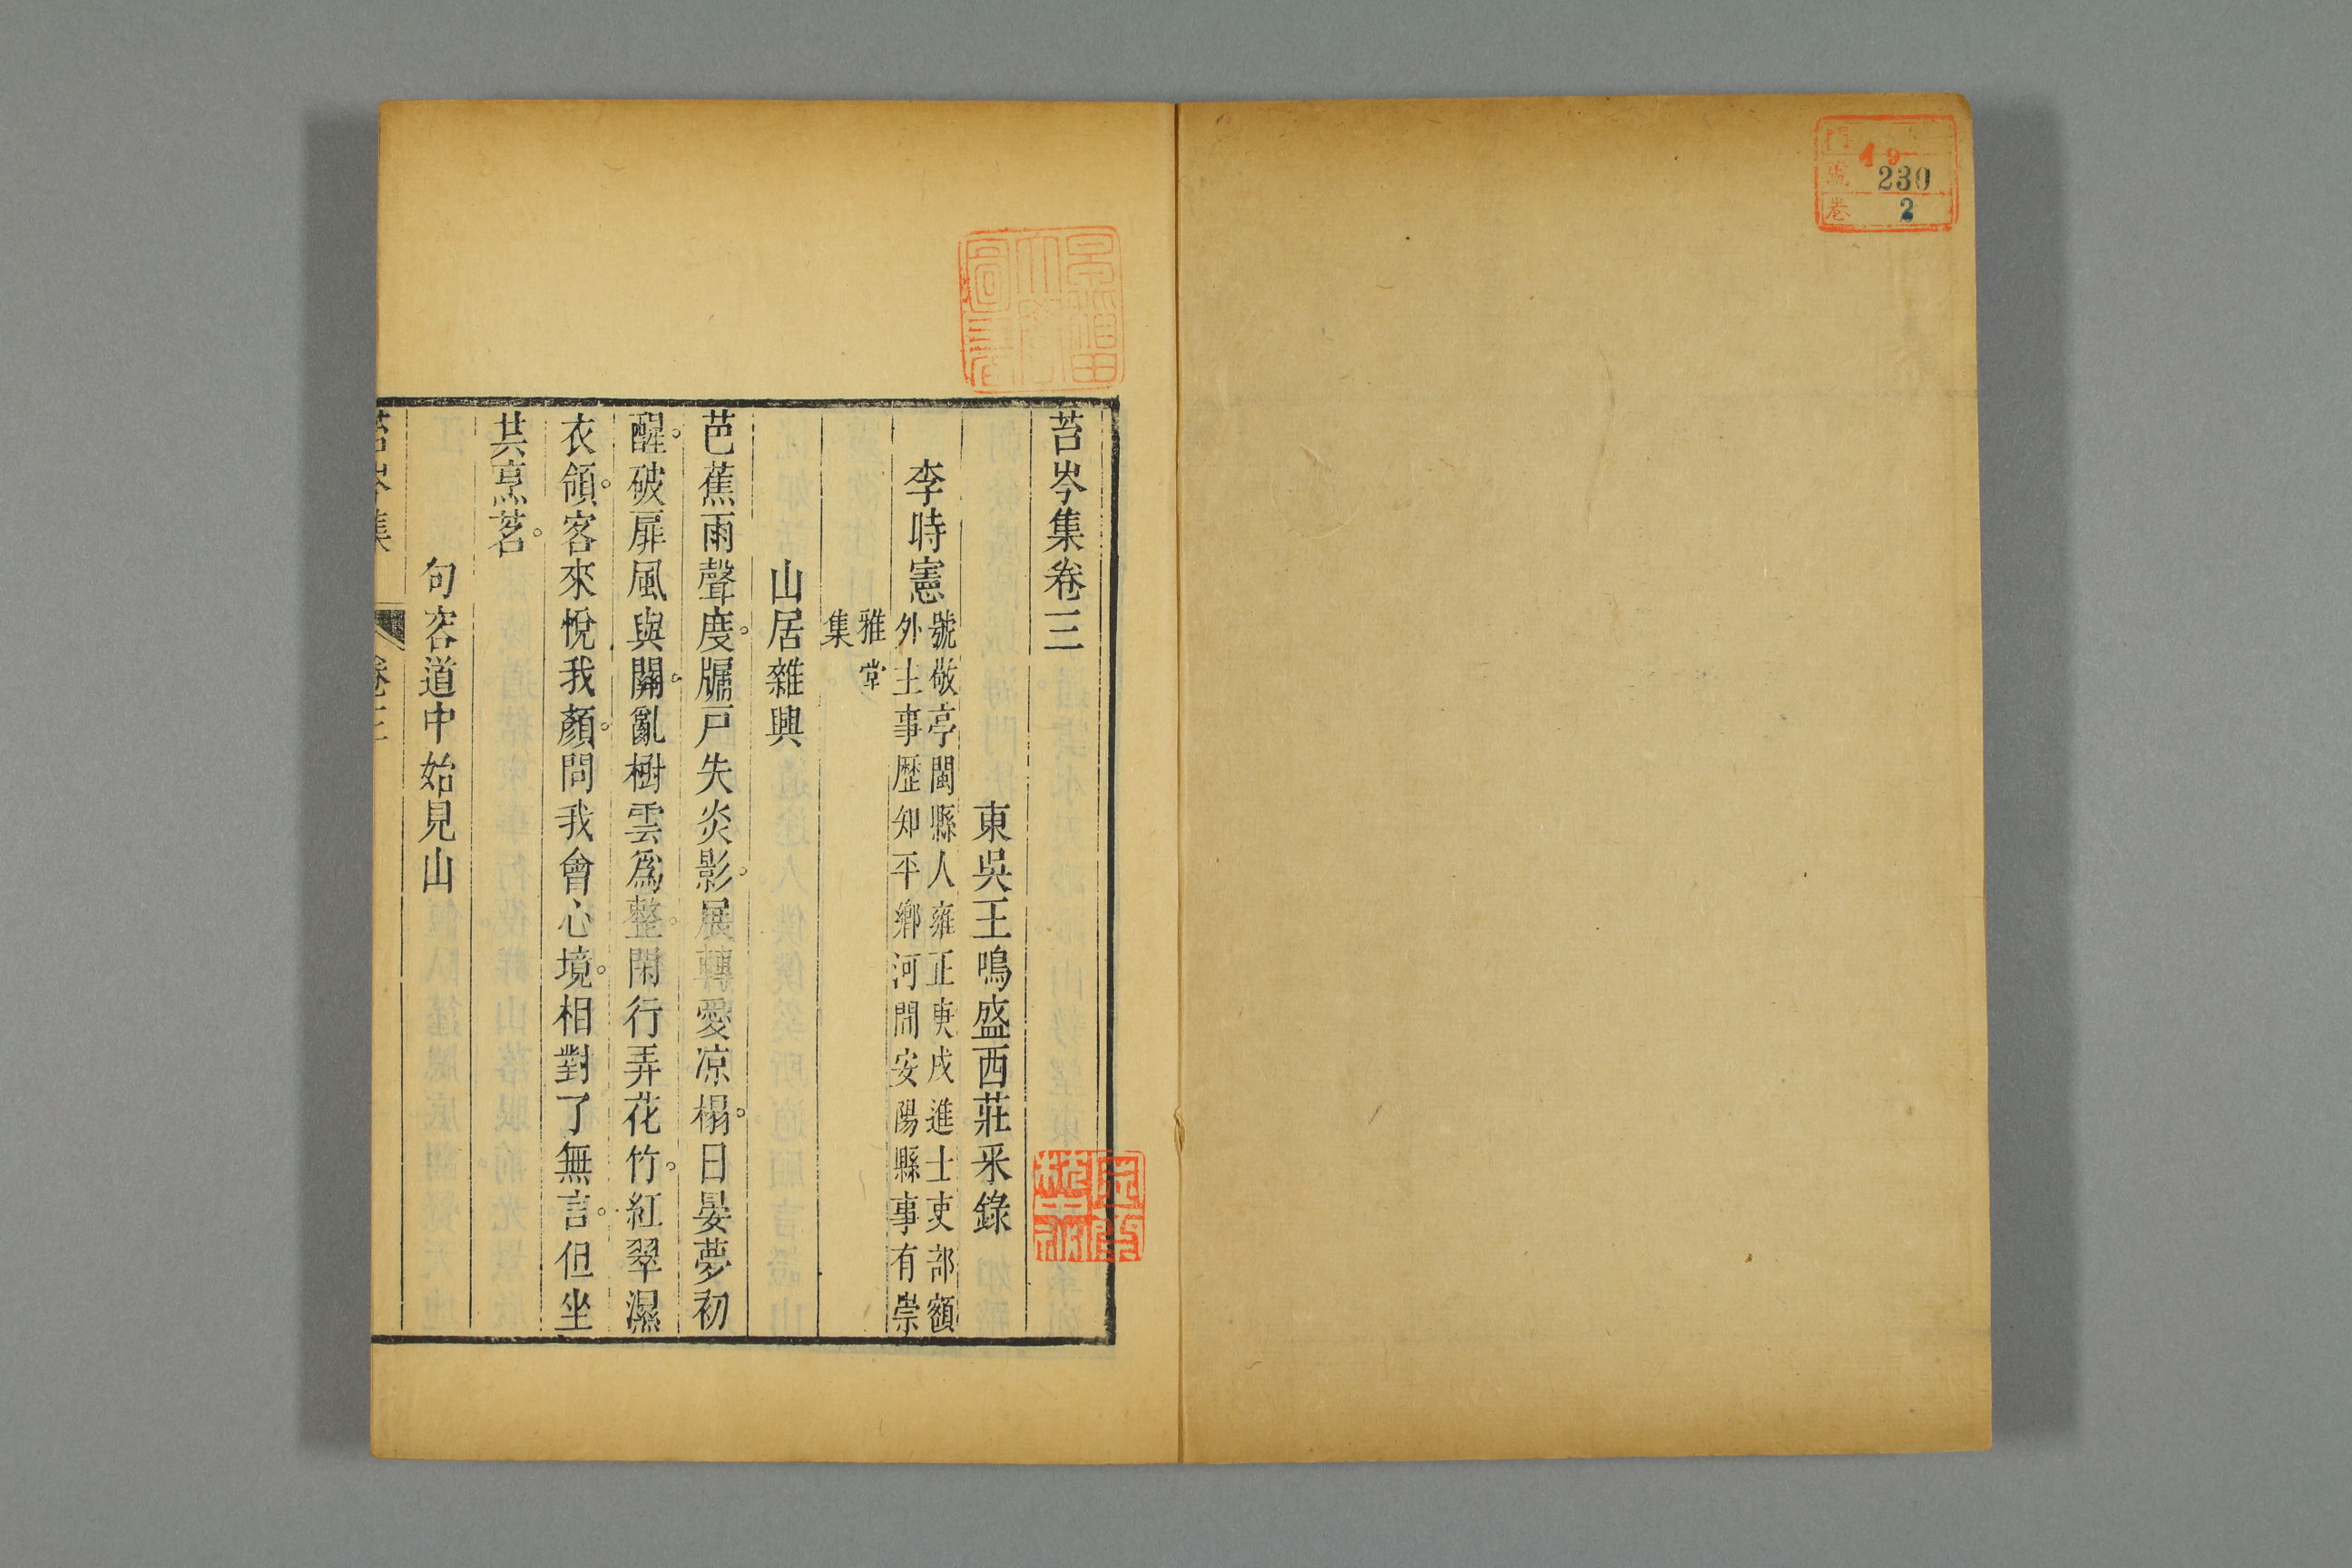 號 19 230
卷 2
苔岑集卷三
東吳王鳴盛西莊采錄
李時憲
號敬亭閩縣人雍正庚戌進士吏部額
外主事歷知平鄉河間安陽縣事有崇
雅堂
集
山居雜興
芭蕉雨聲度。牖戸失炎影。展轉愛凉榻。日晏夢初
醒。破扉風與關。亂樹雲爲整。閑行弄花竹。紅翠濕
衣領。客來悅我顏。問我會心境。相對了無言。但坐
共烹茗。
句容道中始見山
苔岑集 卷三